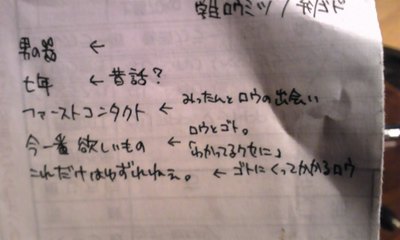 ロウミツ /
男の器 ←
七年 ← 昔話?
ファーストコンタクト ← みったんとロウの出会い
ロウとゴト。
今一番欲しいもの ← 「わかってるクセに」
これだけはゆずれねぇ。 ← ゴトにくってかかるロウ